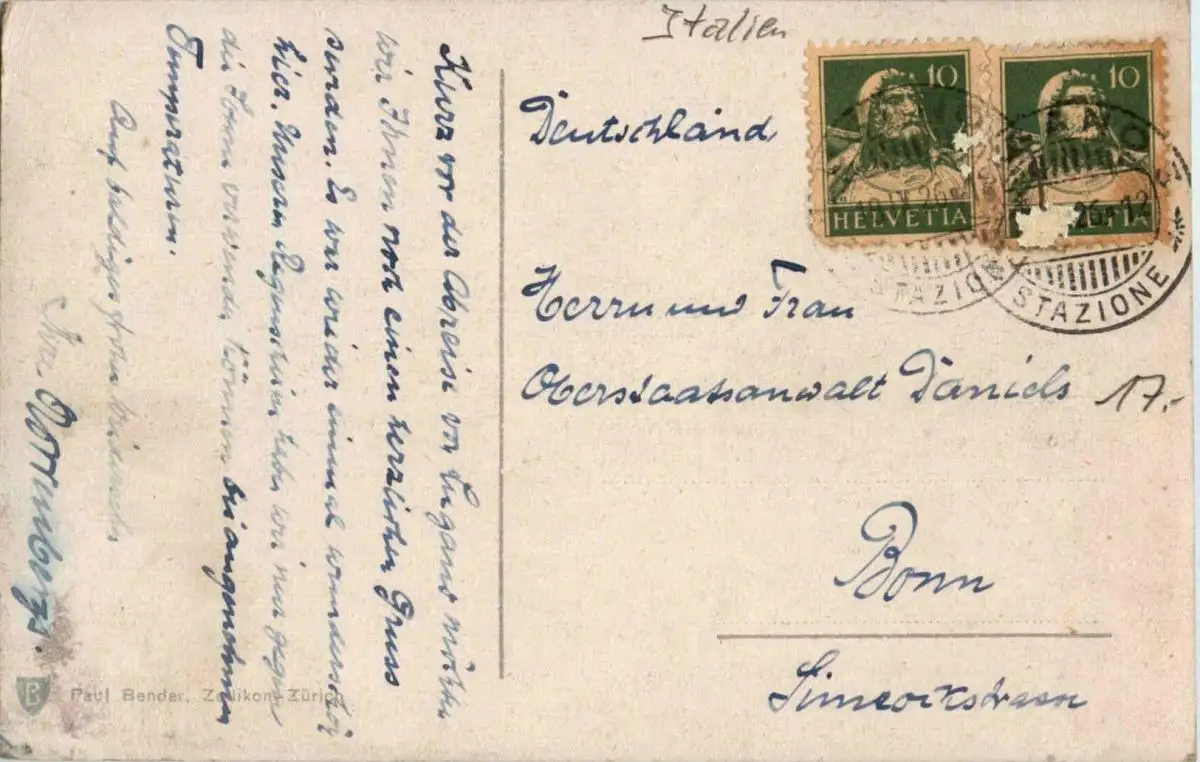 Italien
Kurz vor der Abreise von Lugano möchten
wir Ihnen noch einen herzlichen Gruss
senden. Es war wieder einmal wunderschön
hier. Unsern Regenschirm haben wir nur gegen
die Sonne verwenden können bei angenehmen
Temperaturen.
Auf baldiges frohes
Ihre
Deutschland
Herrn und Frau
Oberstaatsanwalt Daniels
17.-
Bonn
Simrockstrasse
10
HELVETIA
10
STAZIONE
STAZIONE
B
Paul Bender, Zollikon-Zürich